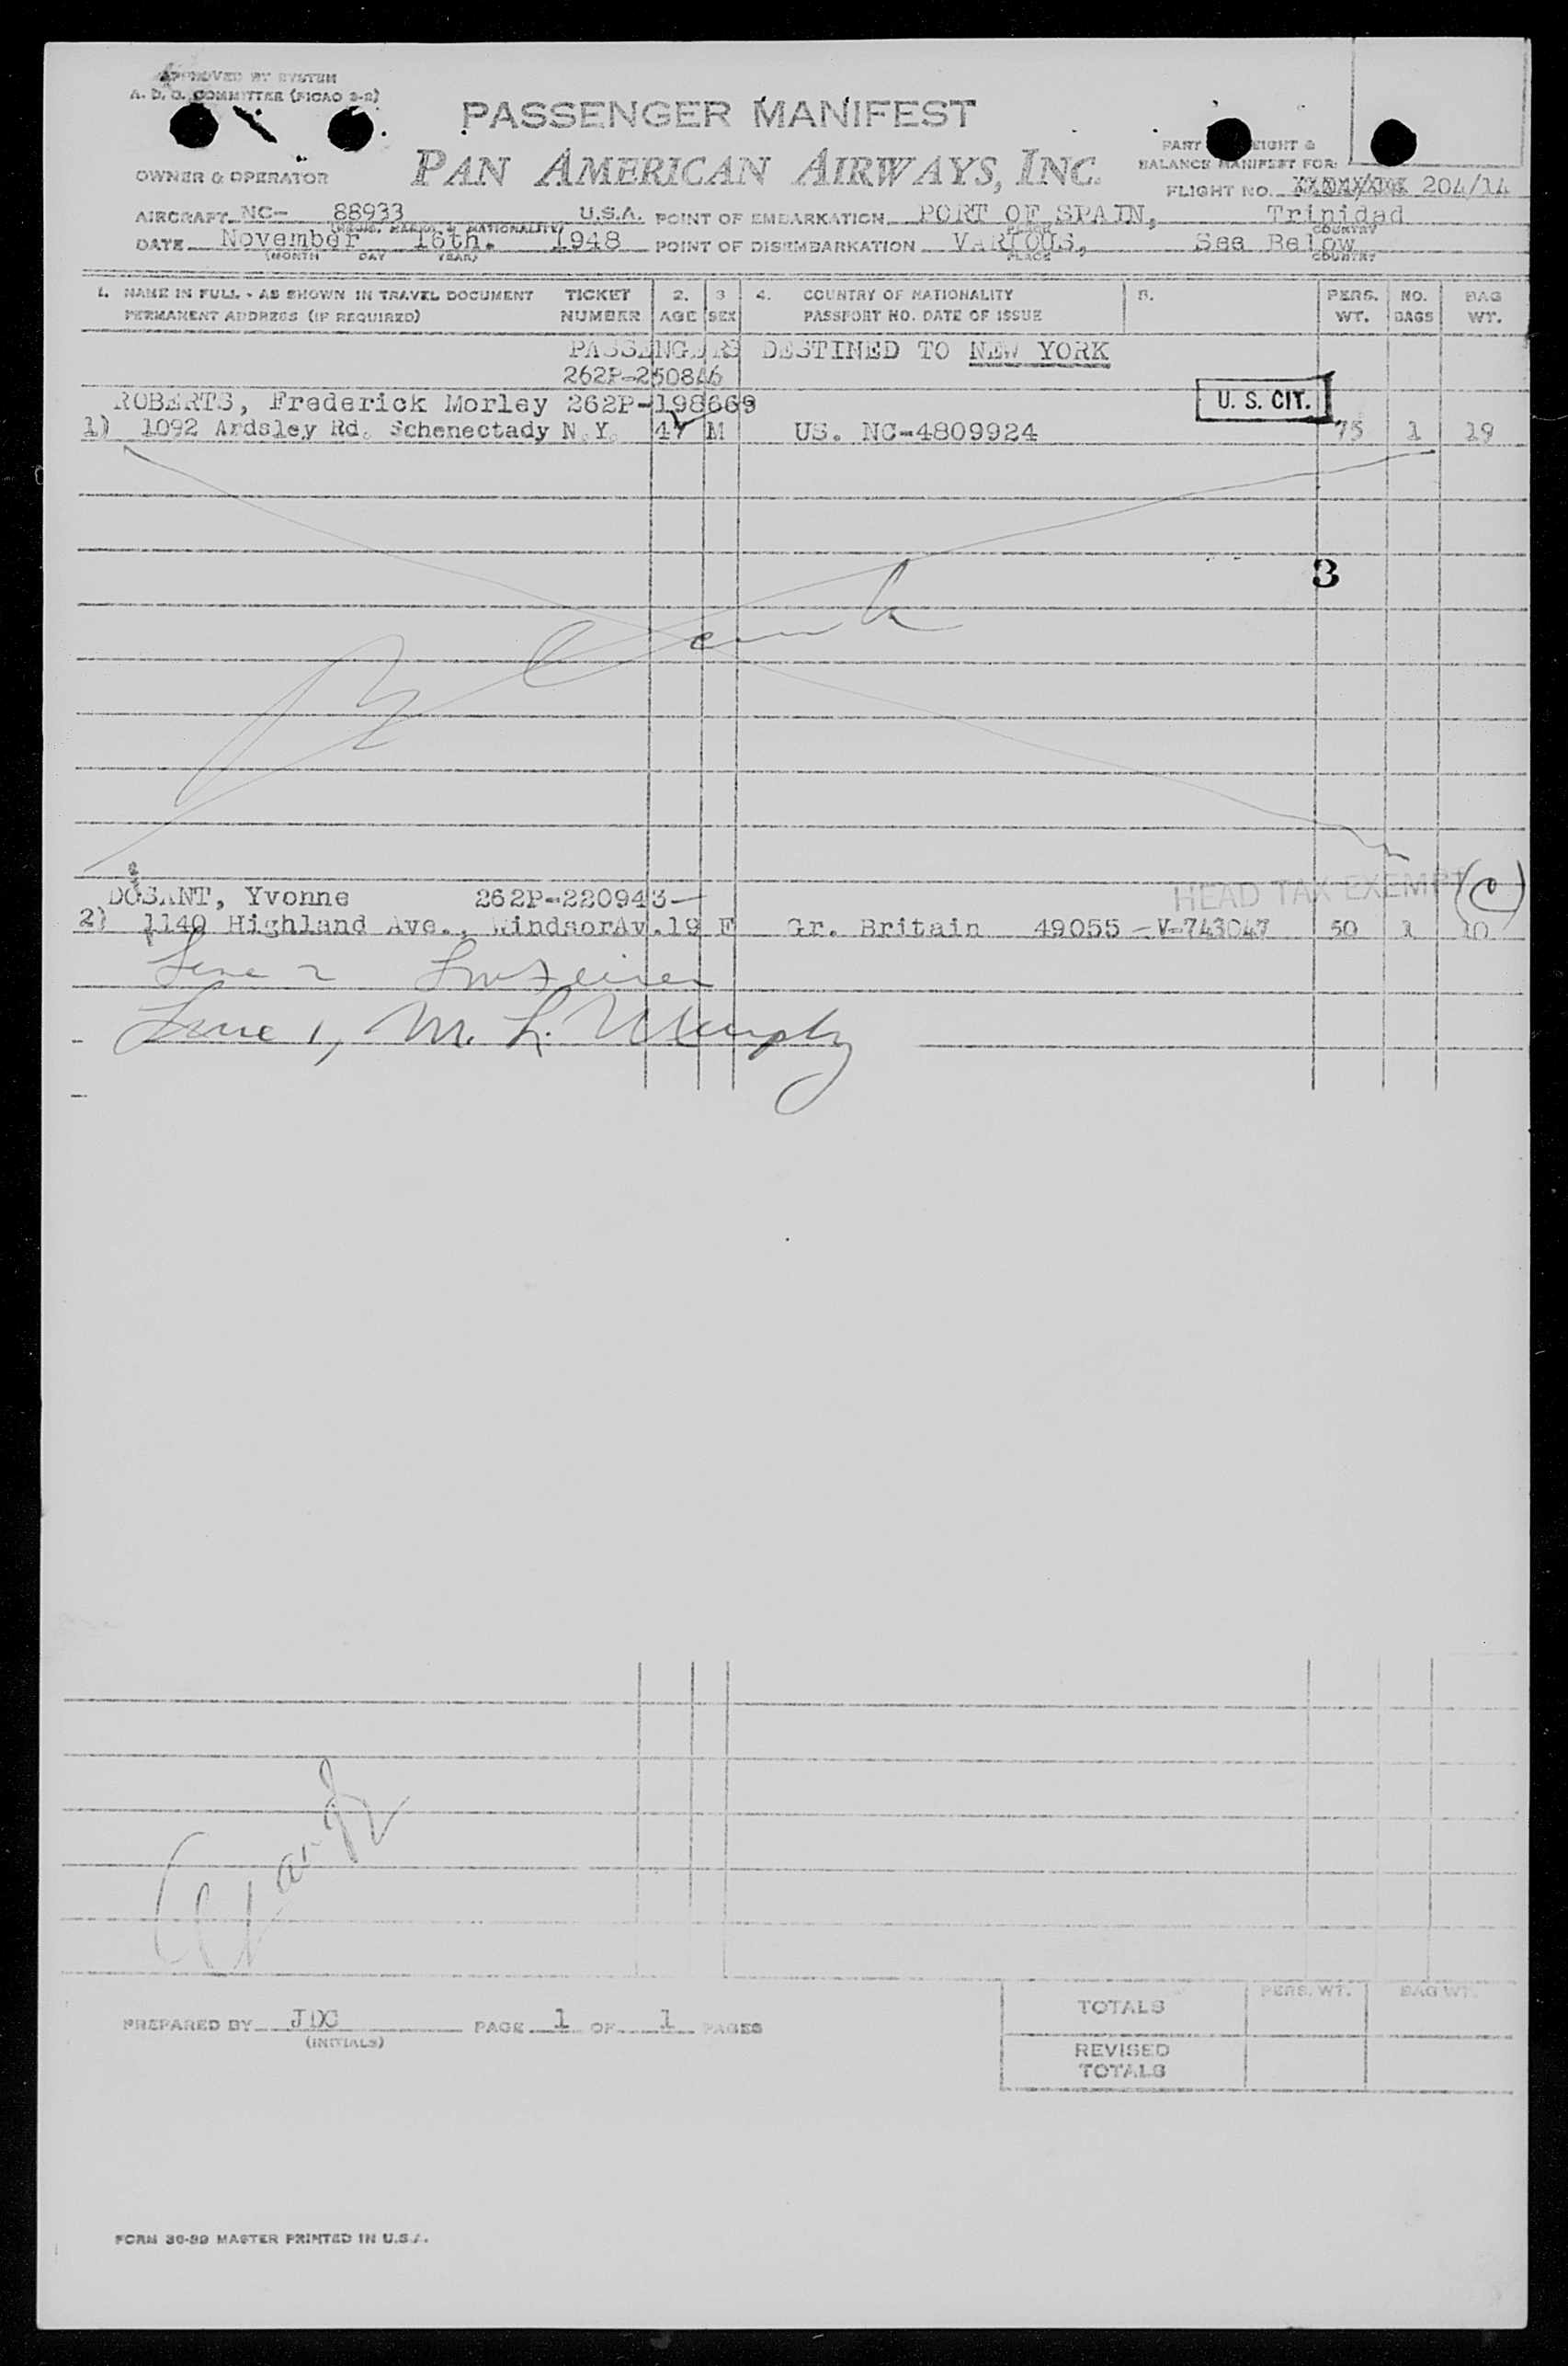 APPROVED BY SYSTEM
A. D. O. COMMITTEE (FICAO 3-2)
PASSENGER MANIFEST
PAN AMERICAN AIRWAYS, INC.
PART EIGHT &
BALANCE MANIFEST FOR:
OWNER & OPERATOR
FLIGHT NO. 204/14
AIRCRAFT NC- 88933 U.S.A. POINT OF EMBARKATION PORT OF SPAIN, Trinidad
(REGIS. MARKS & NATIONALITY) PLACE COUNTRY
DATE November 16th. 1948 POINT OF DISEMBARKATION VARIOUS, See Below
(MONTH DAY YEAR) PLACE COUNTRY
1. NAME IN FULL - AS SHOWN IN TRAVEL DOCUMENT TICKET 2. 3 4. COUNTRY OF NATIONALITY 5. PERS. NO. BAG
PERMANENT ADDRESS (IF REQUIRED) NUMBER AGE SEX PASSPORT NO. DATE OF ISSUE WT. BAGS WT.
PASSENGERS DESTINED TO NEW YORK
262P-250846
ROBERTS, Frederick Morley 262P-198669 U. S. CIT.
1) 1092 Ardsley Rd. Schenectady N.Y. 47 M US. NC-4809924 75 1 19
3
HEAD TAX EXEMPT (C)
DOSANT, Yvonne 262P-220943
2) 1140 Highland Ave., WindsorAv. 19 F Gr. Britain 49055 - V-743047 50 1 10
Line 2
Line 1, M. L. Murphy
PREPARED BY JDC PAGE 1 OF 1 PAGES
(INITIALS)
PERS. WT. BAG WT.
TOTALS
REVISED
TOTALS
FORM 36-99 MASTER PRINTED IN U.S.A.